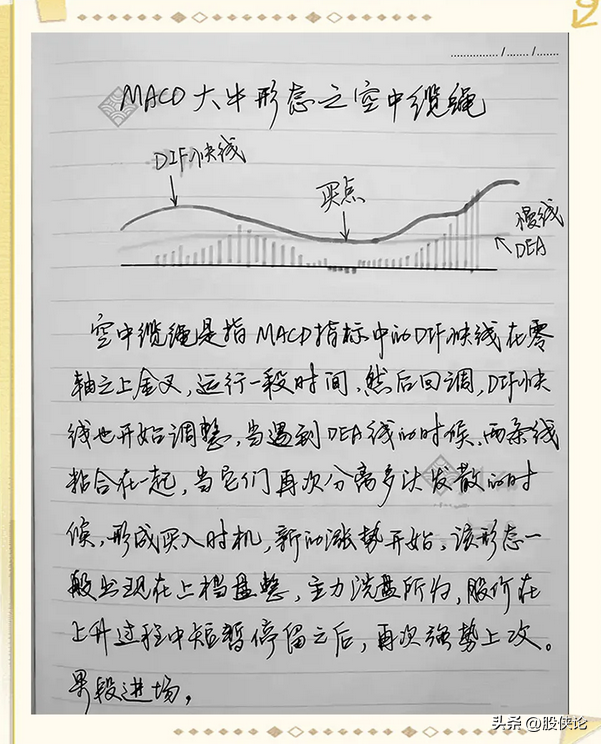 MACD大牛形态之空中缆绳
DIF快线
买点
慢线
DEA
空中缆绳是指MACD指标中的DIF快线在零
轴之上金叉,运行一段时间,然后回调,DIF快
线也开始调整,当遇到DEA线的时候,两条线
粘合在一起,当它们再次分离多头发散的时
候,形成买入时机,新的涨势开始。该形态一
般出现在上档盘整,主力洗盘所为,股价在
上升过程中短暂停留之后,再次强势上攻。
果段进场,
头条 @股侠论